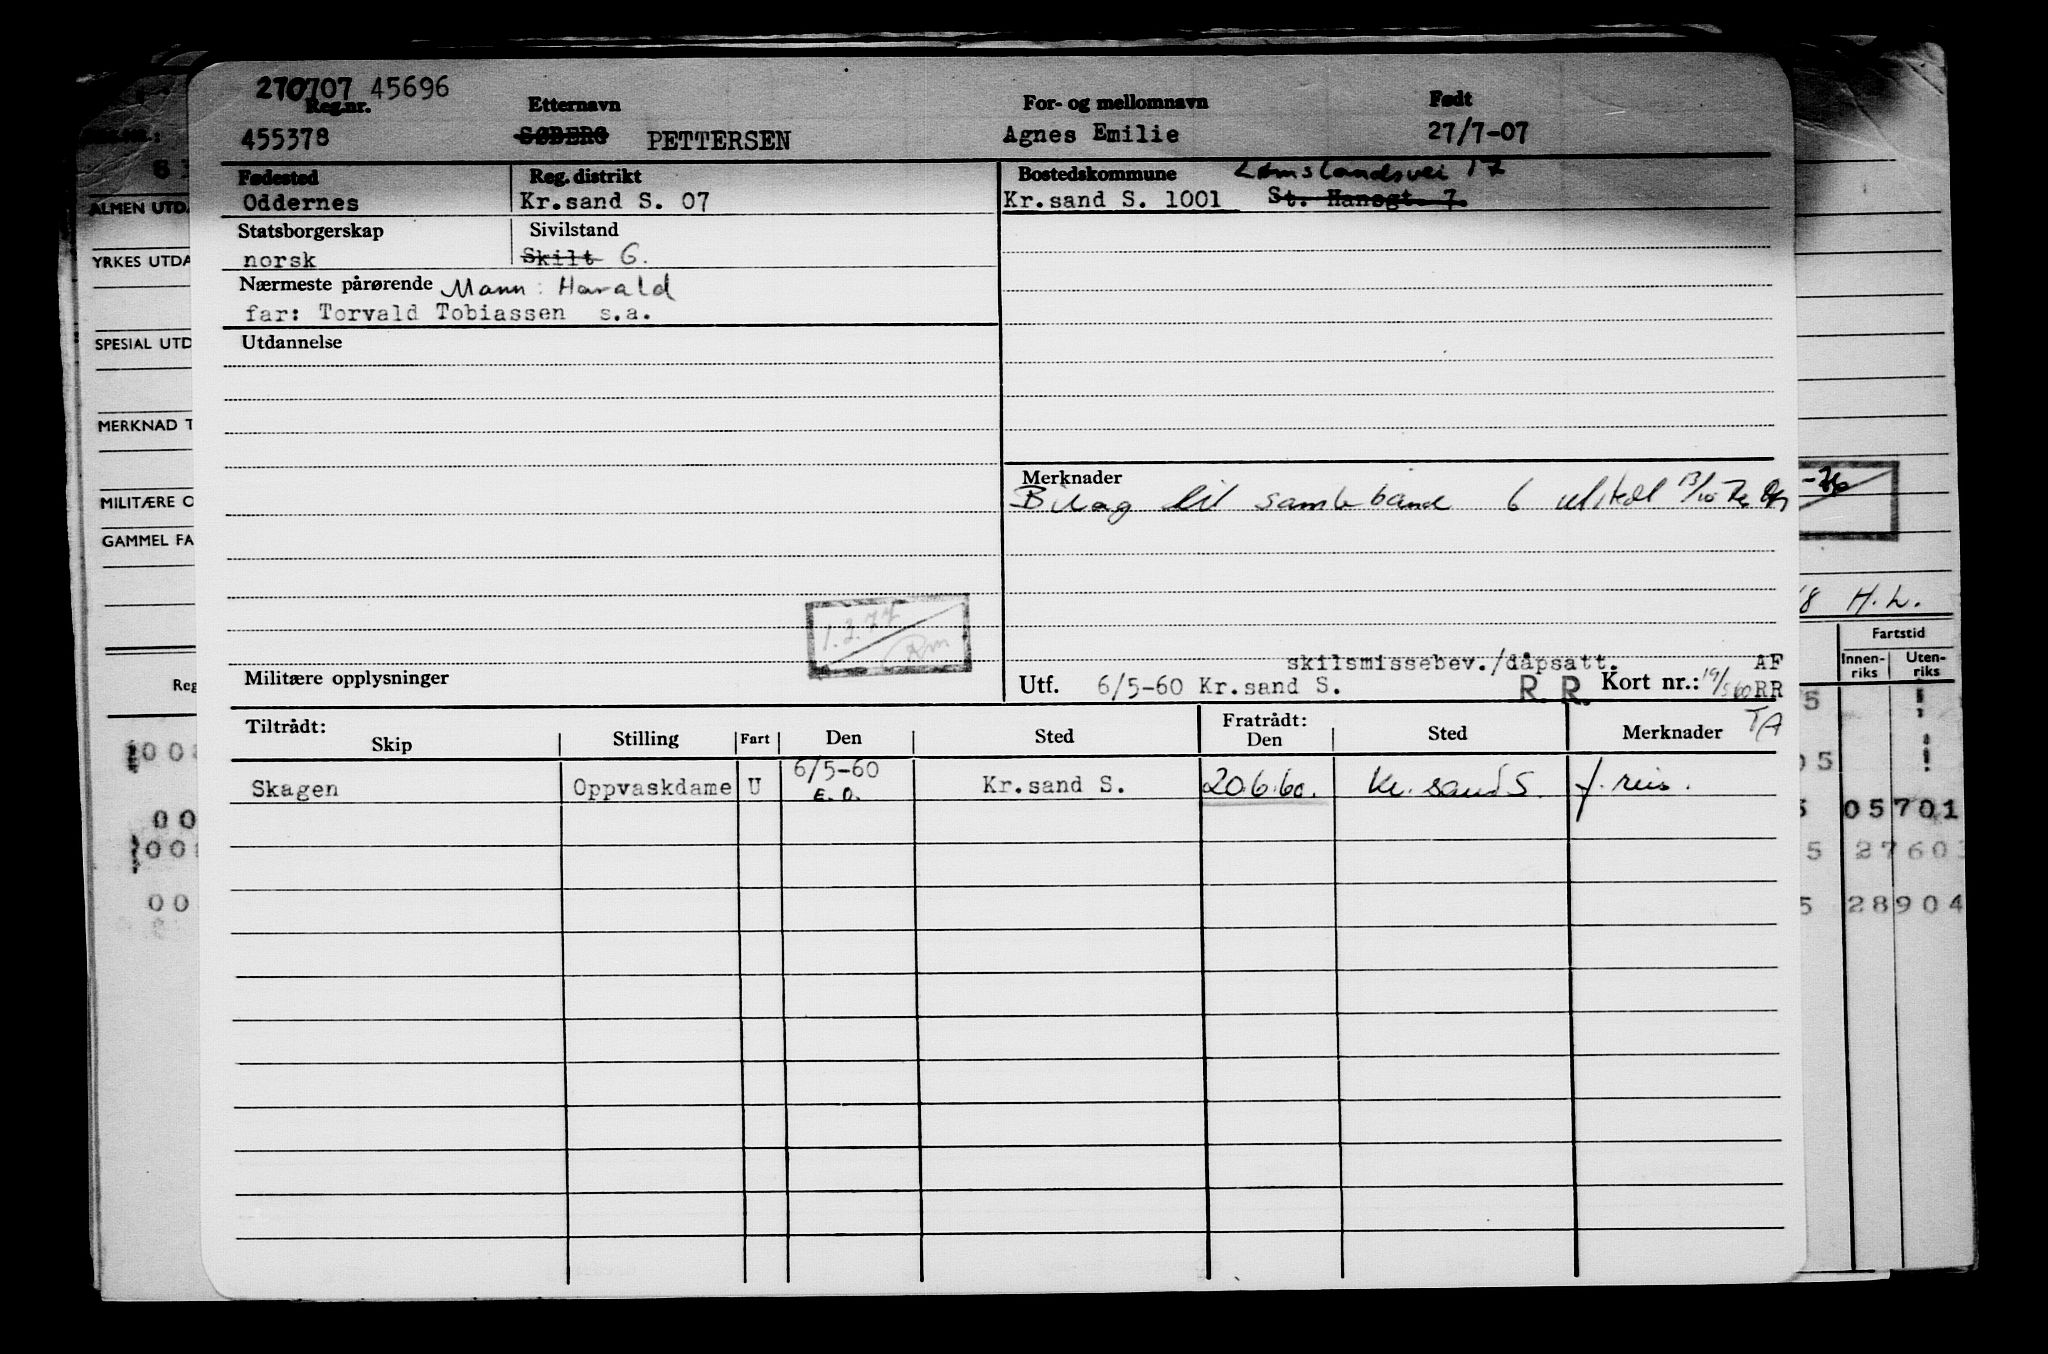 270707 45696
Reg.nr. Etternavn For- og mellomnavn Født
455378 SØBERG PETTERSEN Agnes Emilie 27/7-07
Fødested Reg. distrikt Bostedskommune
Oddernes Kr.sand S. 07 Kr.sand S. 1001 St. Hansgt. 7.
Statsborgerskap Sivilstand
norsk Skilt G.
Nærmeste pårørende Mann: Harald
far: Torvald Tobiassen s.a.
Utdannelse
Merknader
Bilag til samleband 6 utstedt
1.3.77
Rm
skilsmissebev./dåpsatt. AF
Militære opplysninger
Utf. 6/5-60 Kr.sand S. R. R. Kort nr.: 19/5 60 RR
TA
Tiltrådt: Fratrådt:
Skip Stilling Fart Den Sted Den Sted Merknader
Skagen Oppvaskdame U 6/5-60 E.O. Kr.sand S. 20.6.60. Kr. sand S. f. reis.
ALMEN UTDA
YRKES UTDA
SPESIAL UTD
MERKNAD T
MILITÆRE O
GAMMEL FA
Reg
008
00
008
00
8 H.L.
Fartstid
Innen-riks Uten-riks
5
05
05701
5 27603
5 28904